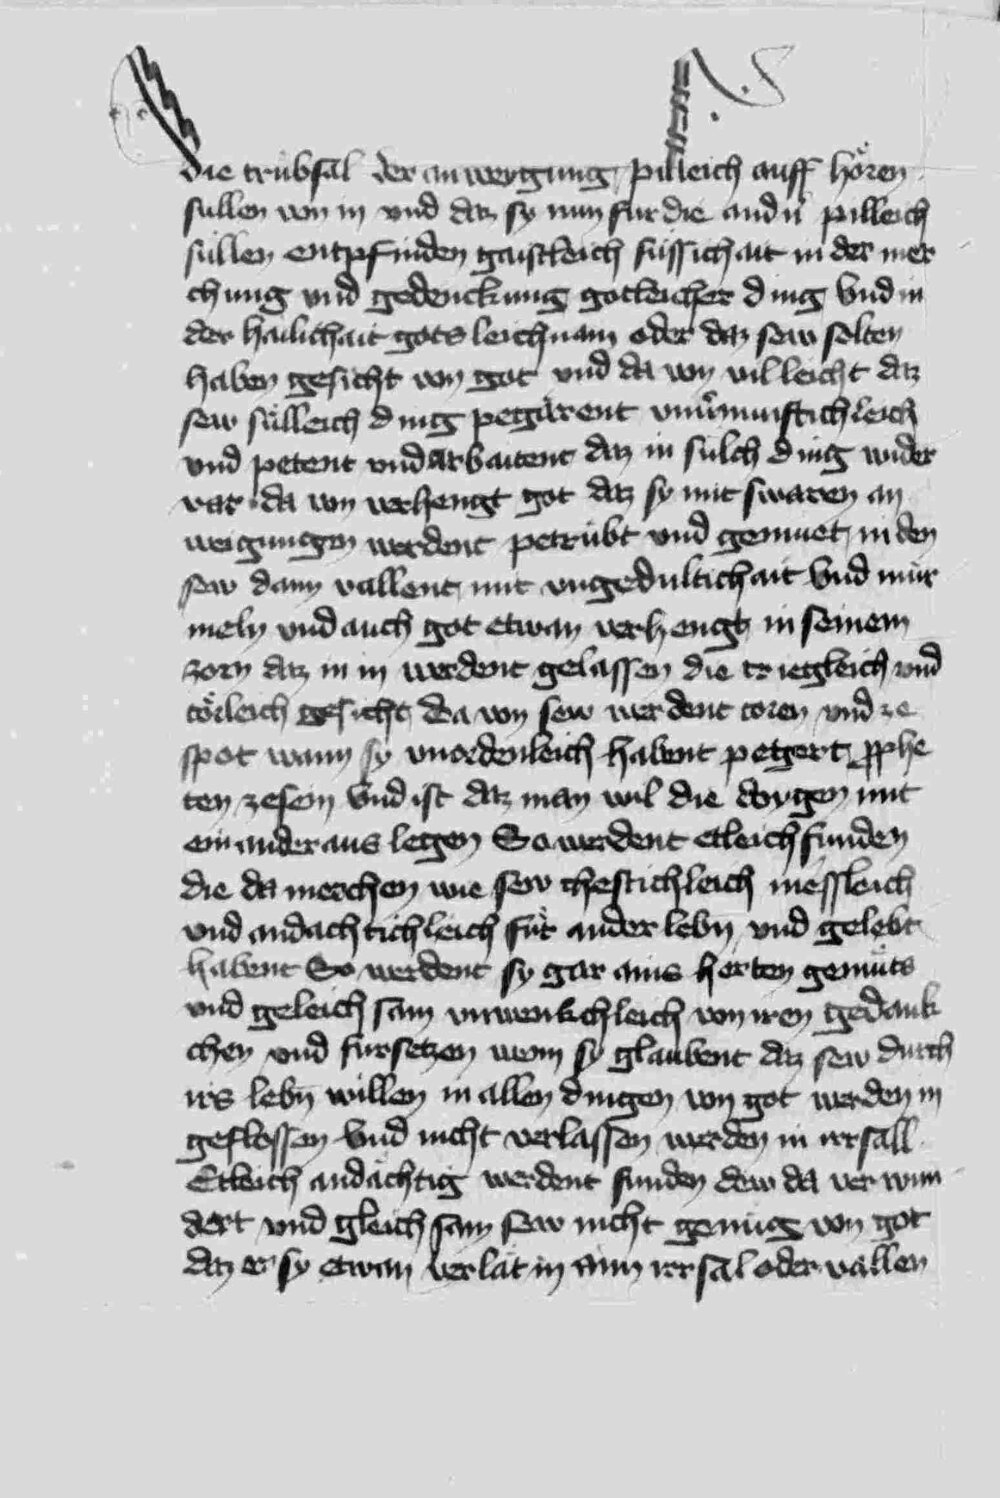 die trübsal der anweygung pilleich auff hören
sullen von in vnd daz sy nun fur die andn̄ pilleich
süllen entpfinden gaistleich süssichait in der mer
chung vnd gedenckung gotleicher ding Vnd in
der hailichait gots leichnam oder daz sew solten
haben gesicht von got vnd da von villeicht daz
sew sülleich ding pegärent vnuernunftichleich
vnd petent vnd arbaitent daz in sulch ding wider
var da von verhengt got daz sy mit swaren an
weigungen werdent petrübt vnd gemuet in den
sew dann vallent mit vngedultichait Vnd mür
meln vnd auch got etwan verhengt in seinem
zorn daz in in werdent gelassen die triegleich vnd
törleich gesicht da von sew werdent toren vnd ze
spot wann sy vnordenleich habent petgert prophe
ten ze sein Vnd ist daz man wil die dörygen mit
ein ander aus legen So werdent etleich funden
die da merchen wie sew chestichleich mëssleich
vnd andachtichleich für ander lebn̄ vnd gelebt
habent So werdent sy gar ains herten gemüts
vnd geleich sam vnwenkchleich von iren gedank
chen vnd fursetzen wenn sy glaubent daz sew durch
irs lebn̄ willen in allen dingen von got werden in
geflossen Vnd nicht verlassen werden in irrsall
Etleich andächtig werdent funden dew da ver wun
dert vnd gleich sam sew nicht genüg von got
daz er sy etwan verlät in ainn irrsal oder vallen